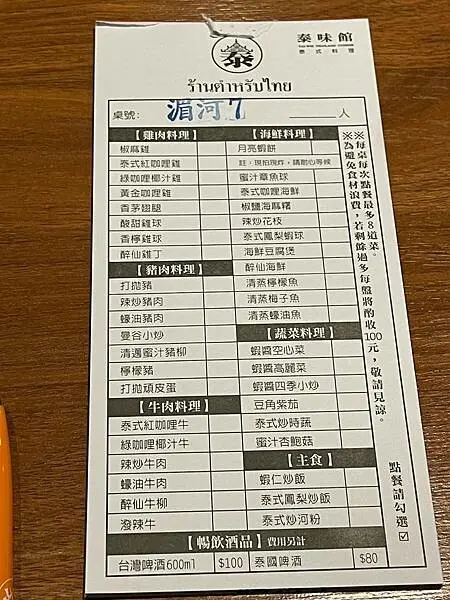 泰味館
泰式料理
泰
ร้านตำหรับไทย
桌號: 湄河7 ______人
【雞肉料理】
椒麻雞
泰式紅咖哩雞
綠咖哩椰汁雞
黃金咖哩雞
香茅翅腿
酸甜雞球
香檸雞球
醉仙雞丁
【豬肉料理】
打拋豬
辣炒豬肉
蠔油豬肉
曼谷小炒
清邁蜜汁豬柳
檸檬豬
打拋頑皮蛋
【牛肉料理】
泰式紅咖哩牛
綠咖哩椰汁牛
辣炒牛肉
蠔油牛肉
醉仙牛柳
潑辣牛
【海鮮料理】
月亮蝦餅
註:現拍現炸,請耐心等候
蜜汁章魚球
泰式咖哩海鮮
椒鹽海麻糬
辣炒花枝
泰式鳳梨蝦球
海鮮豆腐煲
醉仙海鮮
清蒸檸檬魚
清蒸梅子魚
清蒸蠔油魚
【蔬菜料理】
蝦醬空心菜
蝦醬高麗菜
蝦醬四季小炒
豆角紫茄
泰式炒時蔬
蜜汁杏鮑菇
【主食】
蝦仁炒飯
泰式鳳梨炒飯
泰式炒河粉
【暢飲酒品】費用另計
台灣啤酒600ml $100 泰國啤酒 $80
※每桌每次點餐最多8道菜。
※為避免食材浪費,若剩餘過多每盤將酌收100元,敬請見諒。
點餐請勾選☑